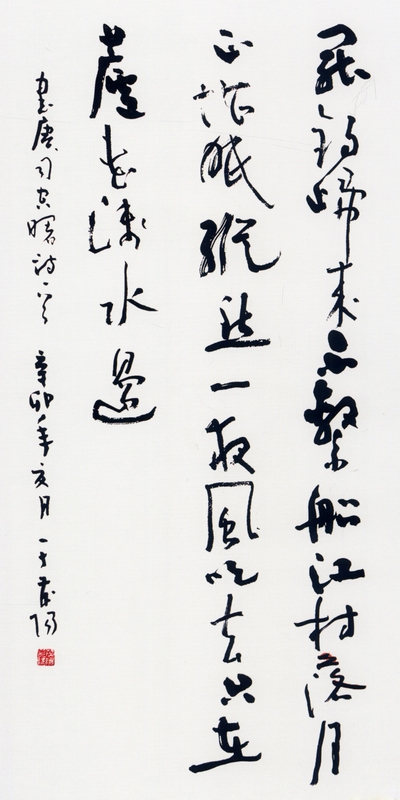 罷釣歸来不繫船江村落月
正堪眠縱然一夜風吹去只在
蘆花淺水邊
書唐司空曙詩一首 辛卯年亥月